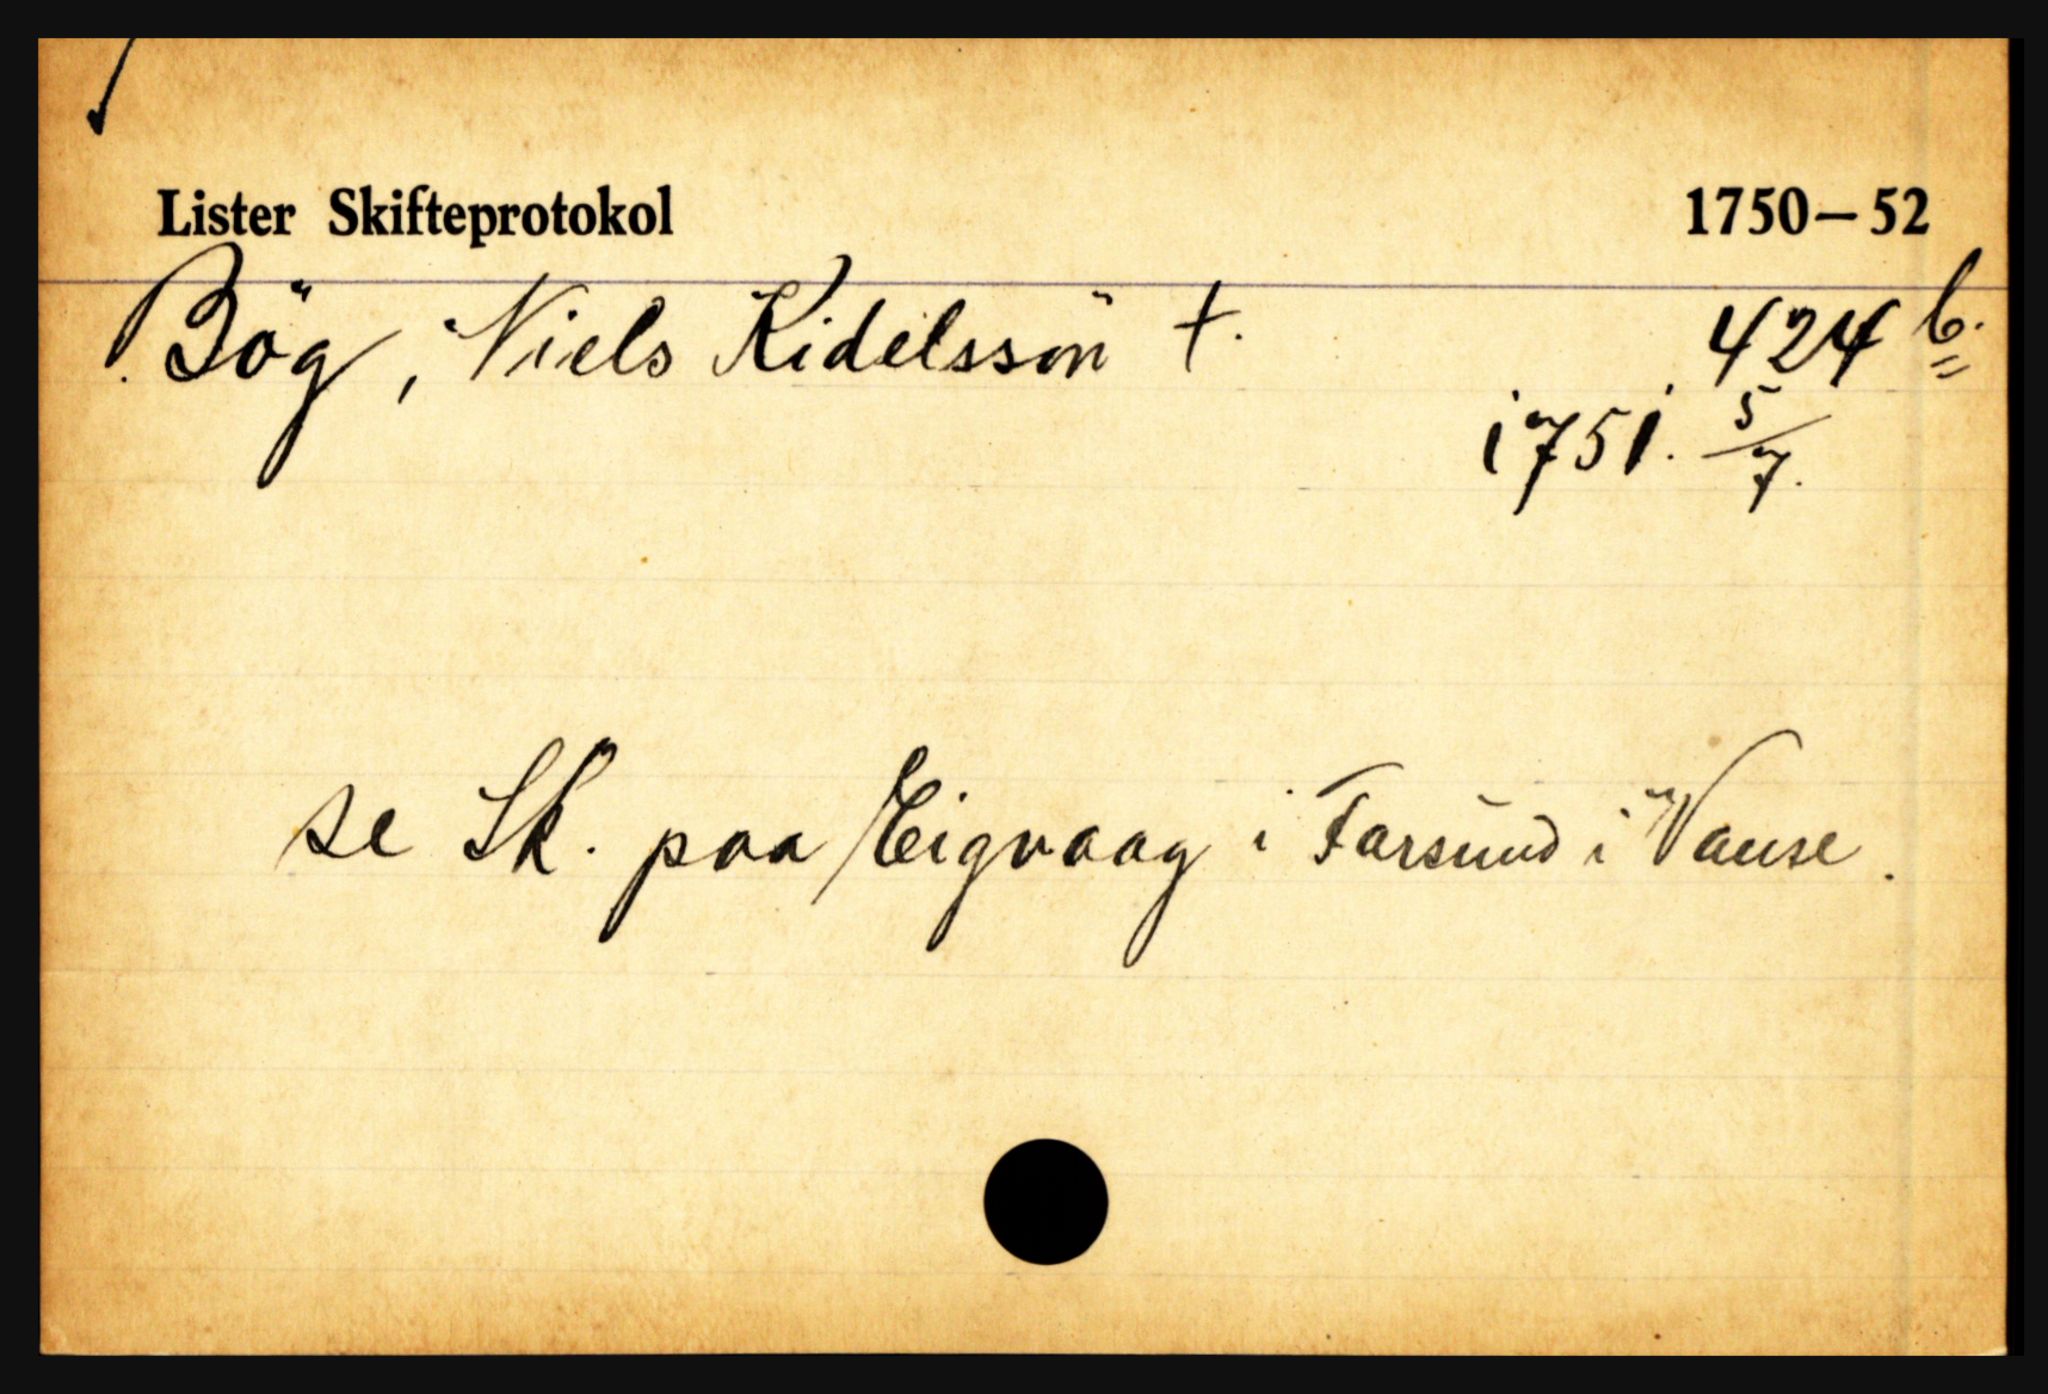 Lister Skifteprotokol 1750–52
Bög, Niels Kidelssön †. 424 b.
1751. 5/7.
se Sk. paa Eigvaag i Farsund i Vanse.